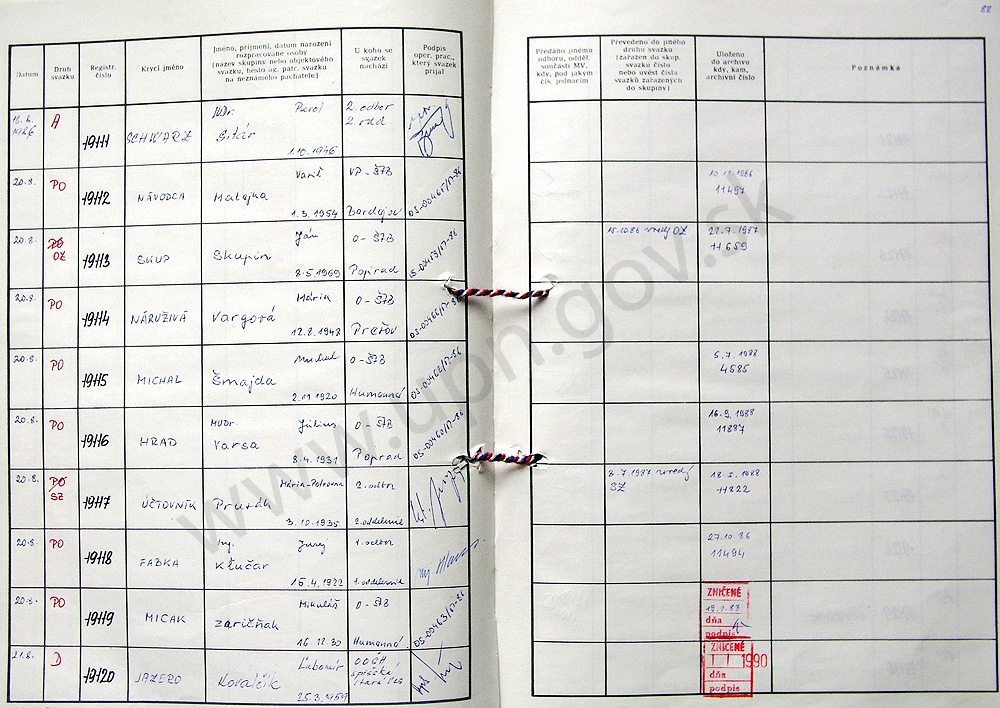 88
Datum
Druh svazku
Registr. číslo
Krycí jméno
Jméno, příjmení, datum narození
rozpracované osoby
(název skupiny nebo objektového
svazku, heslo ag. pátr. svazku
na neznámého pachatele)
U koho se
svazek
nachází
Podpis
oper. prac.,
který svazek
přijal
Předáno jinému
odboru, odděl.
součásti MV,
kdy, pod jakým
čís. jednacím
Převedeno do jiného
druhu svazku
(zařazen do skup.
svazku číslo
nebo uvést čísla
svazků zařazených
do skupiny)
Uloženo
do archivu
kdy, kam,
archivní číslo
Poznámka
1986 A 19111 SCHWARZ MUDr. Pavol
Sitár
1.10.1946
2. odbor
2. odd.
20.8. PO 19112 NÁVODCA
Matejka
1.3.1954
VP - ŠTB
Bardejov
05-00465/17-86
10.11.1986
11497
20.8. OZ 19113 SKUP Ján
Skupin
2.5.1969
O - ŠTB
Poprad
15.10.86
OZ
22.7.1987
11659
20.8. PO 19114 NÁRUŽIVÁ Mária
Vargová
12.8.1948
O - ŠTB
Prešov
20.8. PO 19115 MICHAL Michal
Šmajda
2.11.1920
O - ŠTB
Humenné
05-00462/17-86
5.7.1988
4585
20.8. PO 19116 HRAD MUDr. Július
Varsa
8.4.1931
O - ŠTB
Poprad
05-00460/17-86
16.9.1988
11887
20.8. PO
SZ 19117 ÚČTOVNÍK
3.10.1935
2. odbor
2. oddelenie
SZ
11822
20.8. PO 19118 FABKA Ing. Juraj
Kľučar
15.4.1922
1. odbor
1. oddelenie
27.10.86
11494
20.8. PO 19119 MICAK Mikuláš
Zaričňak
16.12.30
O - ŠTB
Humenné
05-00463/17-86
ZNIČENÉ
dňa
podpis
21.8. D 19120 JAZERO Ľubomír
Kovalčík
25.3.1959
OOČH
Spišská
Stará Ves
ZNIČENÉ
1990
dňa
podpis
www.upn.gov.sk